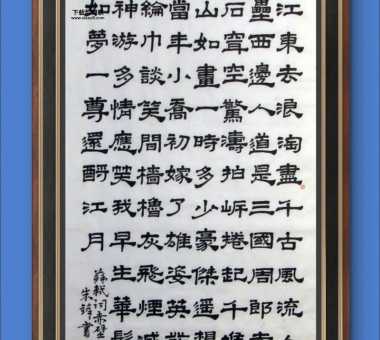 江東去浪淘盡千古風流人
壘西邊人道是三國周郎
石聳空驚濤拍岍捲起千
山如畫一時多少豪傑遥想
當年小喬初嫁了雄姿英發
綸巾談笑間檣櫓灰飛煙滅
神游多情應笑我早生華髮
如夢一尊還酹江月
蘇軾詞赤壁
書